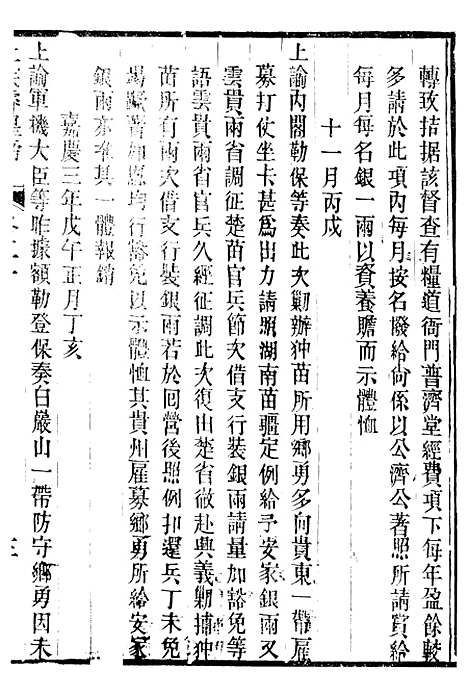 轉致拮据該督查有糧道衙門普濟堂經費項下每年盈餘較
多請於此項內每月按名撥給尙係以公濟公著照所請賞給
每月每名銀一兩以資養贍而示體恤
十一月丙戌
上諭內閣勒保等奏此次勦辦狆苗所用鄉勇多向貴東一帶雇
募打仗坐卡甚爲出力請照湖南苗疆定例給予安家銀兩又
雲貴兩省調征楚苗官兵節次借支行裝銀兩請量加豁免等
語雲貴兩省官兵久經征調此次復由楚省徹赴興義勦捕狆
苗所有兩次借支行裝銀兩若於回營後照例扣還兵丁未免
竭蹶著加恩均行豁免以示體恤其貴州雇募鄉勇所給安家
銀兩亦准其一體報銷
嘉慶三年戊午正月丁亥
上諭軍機大臣等昨據額勒登保奏白巖山一帶防守鄉勇因未
三